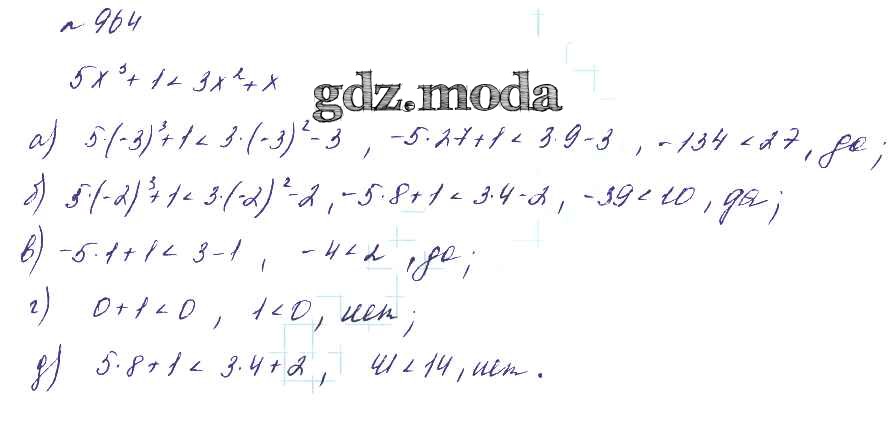 № 964
5x³ + 1 < 3x² + x
gdz.moda
а) 5·(-3)³+1 < 3·(-3)² - 3 , -5·27+1 < 3·9-3 , -134 < 27, да;
б) 5·(-2)³+1 < 3·(-2)² - 2 , -5·8+1 < 3·4-2 , -39 < 10 , да;
в) -5·1+1 < 3-1 , -4 < 2 , да;
г) 0+1 < 0 , 1 < 0 , нет;
д) 5·8+1 < 3·4+2 , 41 < 14 , нет.